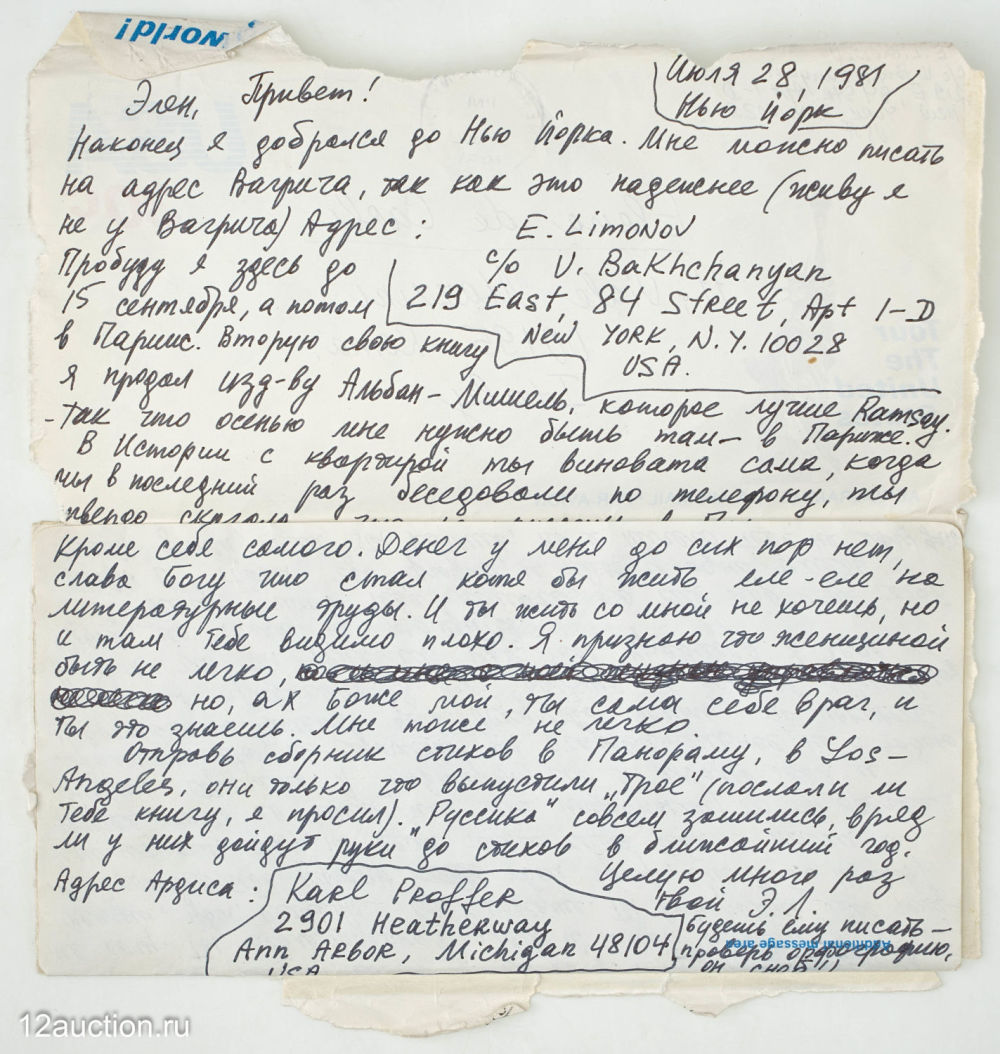 World!
Июля 28, 1981
Нью Йорк
Элен, Привет!
Наконец я добрался до Нью Йорка. Мне можно писать
на адрес Вагрича, так как это надежнее (живу я
не у Вагрича) Адрес :
E. Limonov
c/o V. Bakhchanyan
219 East, 84 Street, Apt 1-D
New York, N.Y. 10028
USA.
Пробуду я здесь до
15 сентября, а потом
в Париж. Вторую свою книгу
я продал изд-ву Альбан-Мишель, которое лучше Ramsay.
-Так что осенью мне нужно быть там — в Париже.
В Истории с квартирой ты виновата сама, когда
мы в последний раз беседовали по телефону, ты
твердо сказала
кроме себя самого. Денег у меня до сих пор нет,
слава Богу что стал хотя бы жить еле-еле на
литературные труды. И ты жить со мной не хочешь, но
и там тебе видимо плохо. Я признаю что женщиной
быть не легко,
но, ах Боже мой, ты сама себе враг, и
ты это знаешь. Мне тоже не легко.
Отправь сборник стихов в Панораму, в Los-
Angeles, они только что выпустили „Трое" (послали ли
тебе книгу, я просил). „Руссика" совсем зашились, вряд
ли у них дойдут "руки" до стихов в ближайший год.
Целую много раз
твой Э.Л.
Адрес Ардиса :
Karl Proffer
2901 Heatherway
Ann Arbor, Michigan 48104
USA
Будешь ему писать —
проверь орфографию,
он сноб!!!
Additional message area
12auction.ru